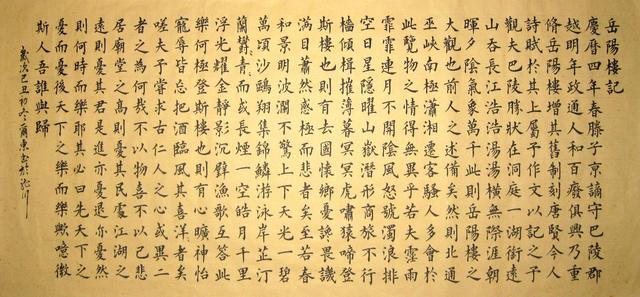 岳陽樓記
慶曆四年春滕子京謫守巴陵郡
越明年政通人和百廢俱興乃重
脩岳陽樓增其舊制刻唐賢今人
詩賦於其上屬予作文以記之予
觀夫巴陵勝狀在洞庭一湖銜遠
山吞長江浩浩湯湯橫無際涯朝
暉夕陰氣象萬千此則岳陽樓之
大觀也前人之述備矣然則北通
巫峽南極瀟湘遷客騷人多會於
此覽物之情得無異乎若夫霪雨
霏霏連月不開陰風怒號濁浪排
空日星隱曜山嶽潛形商旅不行
檣傾楫摧薄暮冥冥虎嘯猿啼登
斯樓也則有去國懷鄉憂讒畏譏
滿目蕭然感極而悲者矣至若春
和景明波瀾不驚上下天光一碧
萬頃沙鷗翔集錦鱗游泳岸芷汀
蘭鬱青而或長煙一空皓月千里
浮光耀金靜影沉璧漁歌互答此
樂何極登斯樓也則有心曠神怡
寵辱皆忘把酒臨風其喜洋者矣
嗟夫予嘗求古仁人之心或異二
者之為何哉不以物喜不以己悲
居廟堂之高則憂其民處江湖之
遠則憂其君是進亦憂退亦憂然
則何時而樂耶其必曰先天下之
憂而憂後天下之樂而樂歟噫微
斯人吾誰與歸
歲次己丑初冬爾東書於